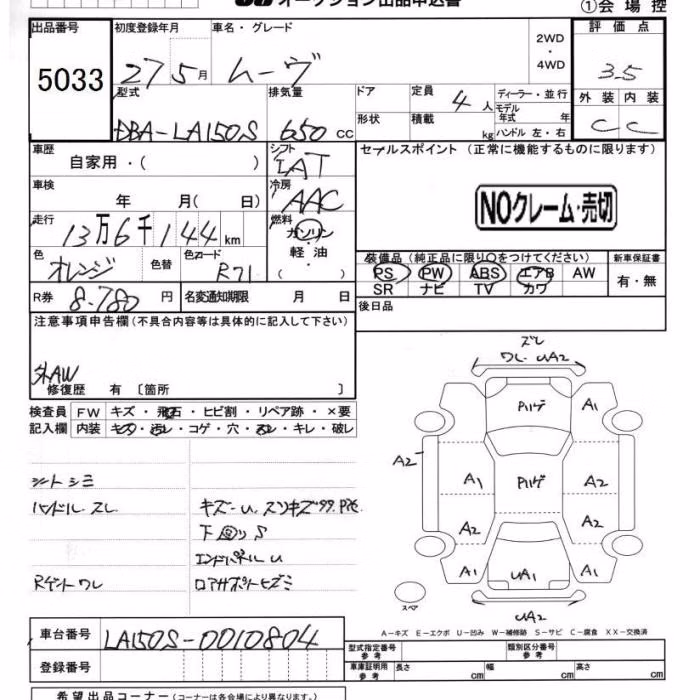 オークション出品申込書
①会場控
出品番号 初度登録年月 車名・グレード 評価点
5033 27 5月 ムーヴ 2WD・4WD 3.5
型式 排気量 ドア 定員 4人 ディーラー・並行 外装 内装
DBA-LA150S 650cc 形状 積載 kg モデル年式 年 ハンドル 左・右 C C
車歴 シフト セールスポイント (正常に機能するものに限ります)
自家用・( ) IAT
車検 冷房 AAC
年 月( 日) NOクレーム・売切
走行 燃料
13万6千144km ガソリン・軽油・( )
色 オレンジ 色替 色コード R71 装備品 (純正品に限り○をつけてください) 新車保証書
PS PW ABS エアB AW 有・無
R券 8,780円 名変通知期限 月 日 SR ナビ TV カワ
注意事項申告欄(不具合内容等は具体的に記入して下さい) 後日品
外AW
修復歴 有 〔箇所 〕
検査員 FW キズ・飛石・ヒビ割・リペア跡・×要
記入欄 内装 キズ・汚レ・コゲ・穴・スレ・キレ・破レ
ズレ
ワレ UA2
Pハゲ A1
A2 A1 Pハゲ A2
A2 A2
A1 UA1 A1
スペア
UA2
シートシミ
ハンドル スレ
下回りS
エンドパネルU
A-キズ E-エクボ U-凹み W-補修跡 S-サビ C-腐食 XX-交換済
車台番号 LA150S-0010804 型式指定番号 参考 類別区分番号 参考
登録番号 車庫証明用 参考 長さ cm 幅 cm 高さ cm
希望出品コーナー(コーナーは各会場により異なります。)